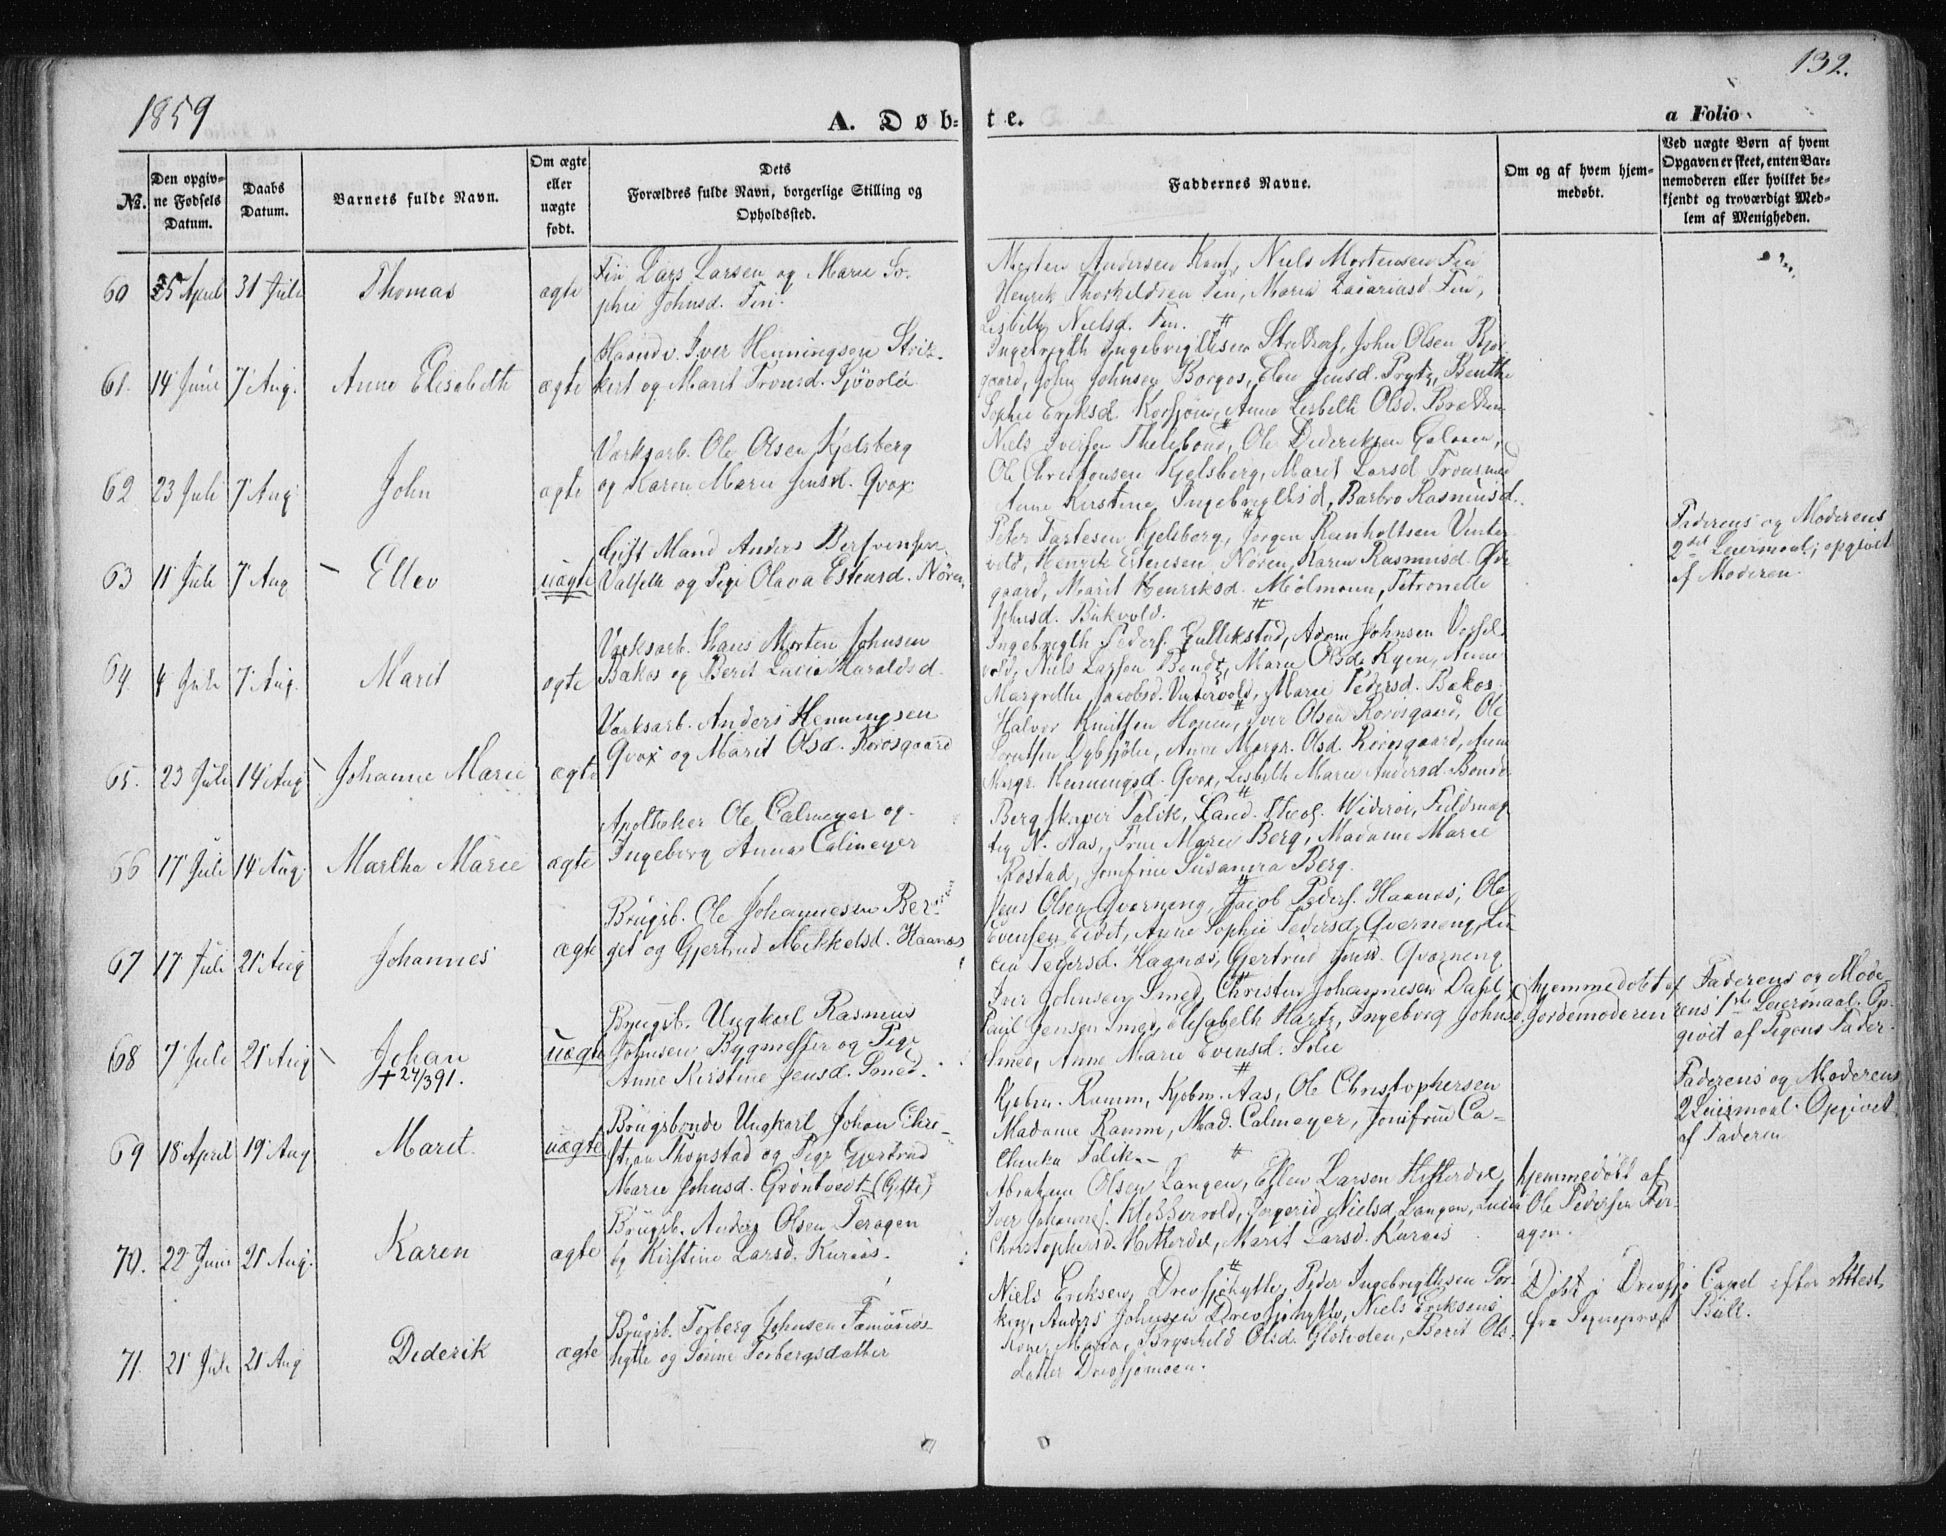 1859
132.
A. Døb-
te.
a Folio
№.
Den opgiv-
ne Fødsels
Datum.
Daabs
Datum.
Barnets fulde Navn.
Om ægte
eller
uægte
født.
Dets
Forældres fulde Navn, borgerlige Stilling og
Opholdssted.
Faddernes Navne.
Om og af hvem hjem-
medøbt.
Ved uægte Børn af hvem
Opgaven er skeet, enten Bar-
nemoderen eller hvilket be-
kjendt og troværdigt Med-
lem af Menigheden.
60 25 April 31 Juli Thomas ægte
Fin Lars Larsen og Marie So-
phie Johnsd. Fin.
Morten Andersen Kant, Niels Mortensen Fin
Henrik Thorkildsen Fin, Maria Zacariasd. Fin,
Lisbeth Nielsd. Fin. #
61. 14 Juni 7 Aug. Anne Elisabeth ægte
Haandv. Iver Henningsen Strik-
kert og Marit Tronsd. Sjøvold
Ingebrigth Ingebrigthsen John Olsen
gaard, John Johnsen Borgos, Elen Jensd. Prytz, Benthe
Sophie Eriksd. Korsjøen, Anne Lisbeth Olsd. Brekken
62 23 Juli 7 Aug John ægte
Værksarb. Ole Olsen Kjelsberg
og Karen Marie Jensd. Qvax
Niels Iversen Ole Dideriksen Galaaen,
Ole Christensen Kjelsberg, Marit Larsd
Anne Kirstine Ingebrigthsd, Barbro Rasmusd.
63 11 Juli 7 Aug Ellev uægte
Gift Mand Anders Bersvensen
Valseth og Pige Olava Estensd. Nøren
Peter Kjelsberg, Jørgen Reinholtsen Vinter-
vold, Henrik Estensen Nøren, Karen Rasmusd.
gaard, Marit Henriksd. Mølmann, Petronelle
Johnsd. Bukvold. #
Faderens og Moderens
2det Leiermaal; opgivet
af Moderen.
64. 4 Juli 7 Aug. Marit ægte
Værksarb. Hans Morten Johnsen
Bakos og Berit Lucie Haraldsd.
Ingebrigth Peders. Gullikstad, Adam Johnsen
vold, Niels Larsen Bendz, Marie Olsd. Ryen, Anne
Margrethe Jacobsd. Vintervold, Marie Pedersd. Bakos.
65. 23 Juli 14 Aug Johanne Marie ægte
Værksarb. Anders Henningsen
Qvax og Marit Olsd. Rørosgaard
Halvor Knutsen Iver Olsen Rorosgaard, Ole
Anne Margr. Olsd. Rorosgaard, Anne
Margr. Henningsd. Qvax, Lisbeth Marie Andersd.
66 17 Juli 14 Aug. Martha Marie ægte
Apotheker Ole Calmeyer og
Ingeborg Anna Calmeyer
Bergskriver Falik, Cand. Theol. Widerøe, Fuldmæg-
tig N. Aas, Frue Marie Berg, Madame Marie
Rostad, Jomfrue Susanna Berg.
67 17 Juli 21 Aug Johannes ægte
Brugsb. Ole Johannesen Ber-
get og Gjertrud Mikkelsd. Haanæs
Jens Olsen Qværneng, Jacob Peders. Haanæs, Ole
Evensen Eidet, Anne Sophie Pedersd. Qverneng, Lu-
cia Pedersd. Haanæs, Gjertrud Jensd. Qværneng
68 7 Juli 21 Aug Johan
+ 24/3 91.
uægte
Brugsb. Ungkarl Rasmus
Johnsen Bygmester og Pige
Anne Kirstine Jensd. Smed.
Iver Johnsen Smed, Christen Johannesen Dahl,
Paul Jensen Smed, Elisabeth Hartz, Ingeborg Johnsd.
Smed, Anne Marie Evensd. Solie
hjemmedøbt af
Jordemoderen
Faderens og Mode-
rens 1ste Leiermaal. Op-
givet af Pigens Fader.
69 18 April 19 Aug Marit. uægte
Brugsbonde Ungkarl Johan Chri-
stian Thonstad og Pige Gjertrud
Marie Johnsd. Grøntvedt (Gifte)
Kjøbm. Ramm, Kjøbm. Aas, Ole Christophersen
Madame Ramm, Mad. Calmeyer, Jomfrue Ca-
thinka Falik. #
Faderens og Moderens
2 Leiermaal. Opgivet
af Faderen
70. 22 Juni 21 Aug. Karen ægte
Brugsb. Anders Olsen Feragen
og Kirstine Larsd. Kuraas.
Abraham Olsen Langen, Ellen Larsen Hitterdal
Iver Johannes. Klettervold, Nielsd. Langen, Lucia
Christophersd. Hitterdal, Marit Larsd. Kuraas
hjemmedøbt af
Ole Pedersen Fer-
agen.
71. 21 Juli 21 Aug Diderik ægte
Brugsb. Torberg Johnsen Fæmundss-
hytte og Sirine Torbergsdatter
Niels Eriksen, Drevsjøhytte, Peder Ingebrigthsen
Anders Johnsen Drevsjøhytte, Niels Eriksens
Kone Maria, Brynhild Olsd. Berit Ols-
datter Drevsjømoen.
Døbt i Drevsjø Capel efter Attest
fra Sognepræst Bull.